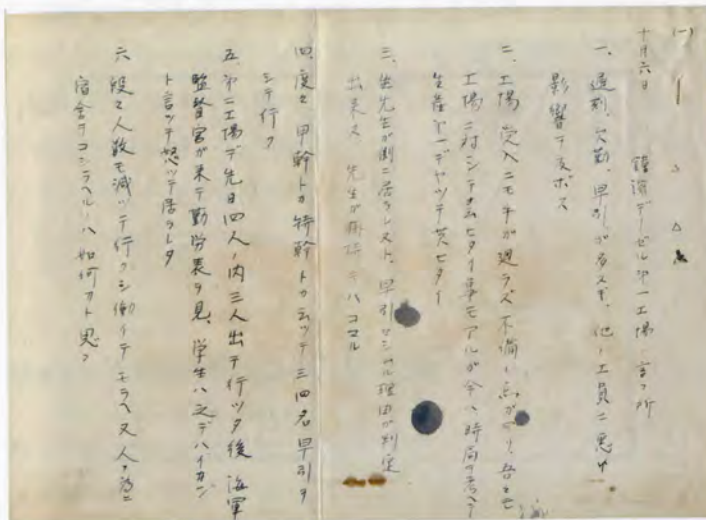 (一)
十月六日 鐘淵デーゼル第一工場ノ言フ所
一、遅刻、欠勤、早引ガ多スギ、他ノ工員ニ悪イ
影響ヲ及ボス
二、工場ノ受入ニモ手ガ廻ラズ不備ノ点ガアリ、吾々モ
工場ニ対シテ云ヒタイ事モアルガ今ハ時局ヲ考ヘテ
生産第一デヤッテ貰ヒタイ
三、先生ガ側ニ居ラレヌト、早引セシムル理由ガ判定
出来ヌ 先生ガ掛持チハコマル
四、度々甲幹トカ特幹トカ云ッテ三四名早引ヲ
シテ行ク
五、第二工場デ先日四人ノ内三人出テ行ッタ後 海軍
監督官ガ来テ勤労表ヲ見、学生ハ之デハイカン
ト言ッテ怒ッテ居ラレタ
六、段々人数モ減ッテ行クシ働イテモラヘヌ人ノ為ニ
宿舎ヲコシラヘルノハ如何カト思フ